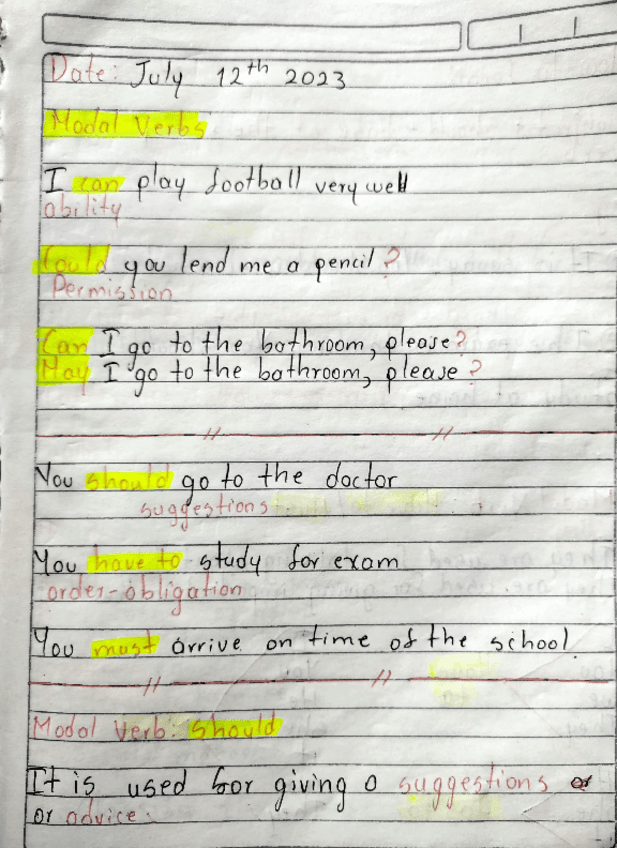 Date: July 12th 2023
Modal Verbs
I can play football very well
ability
Could you lend me a pencil?
Permission
Can I go to the bathroom, please?
May I go to the bathroom, please?
You should go to the doctor
suggestions
You have to study for exam
order-obligation
You must arrive on time of the school.
Modal Verb: should
It is used for giving a suggestions or
or advice.